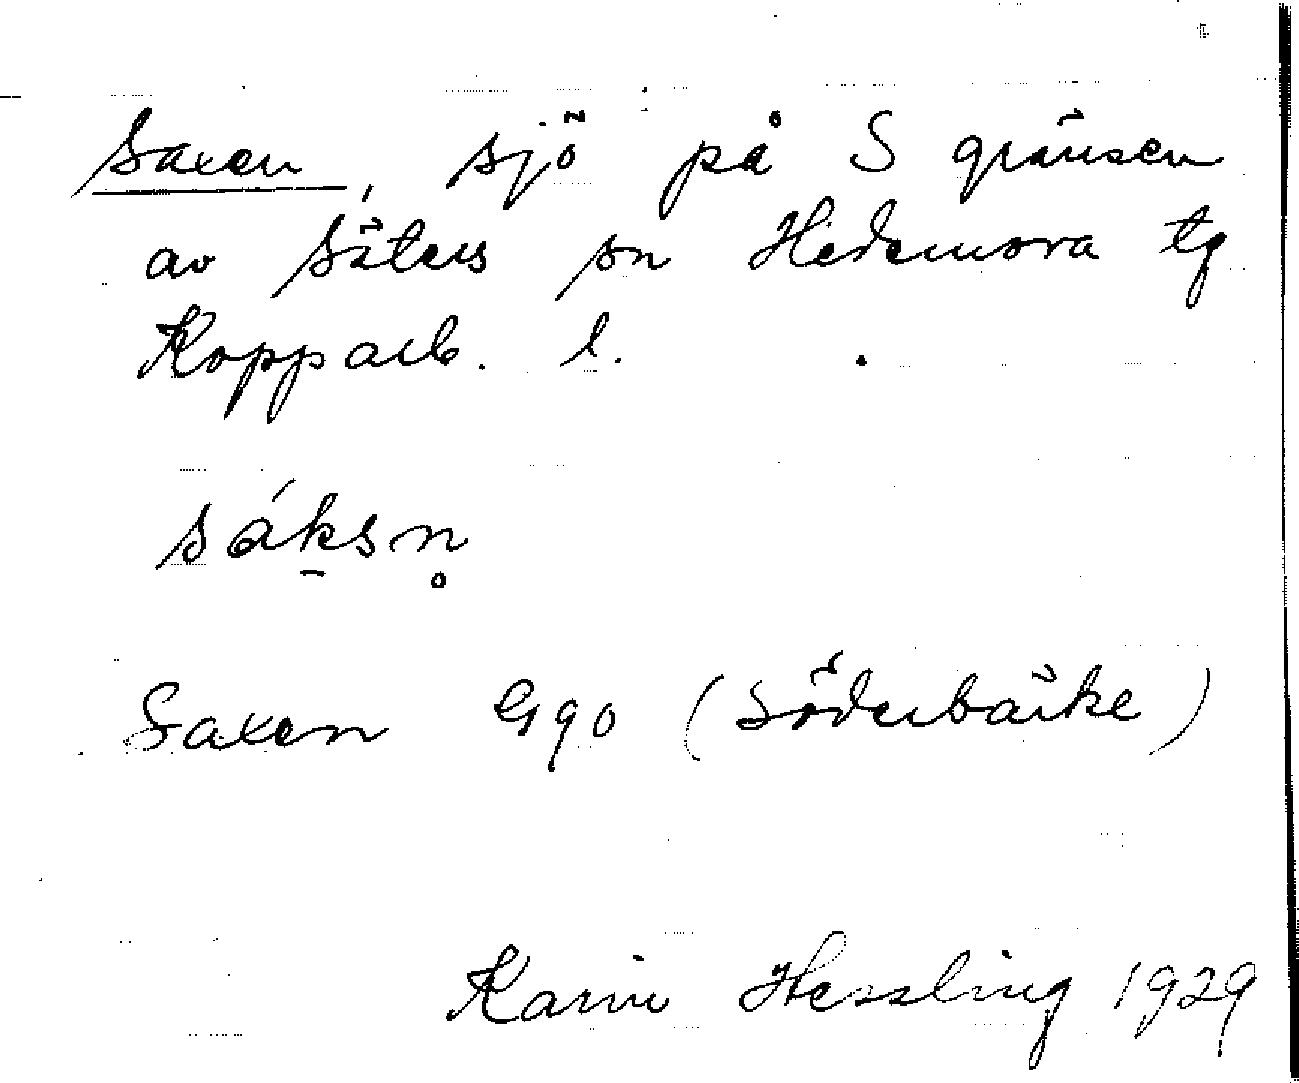 Saxen, sjö på S gränsen
av Säters sn Hedemora tg
Kopparb. l.
sák̠sn̥
Saxen G90 (Söderbärke)
Karin Hessling 1929